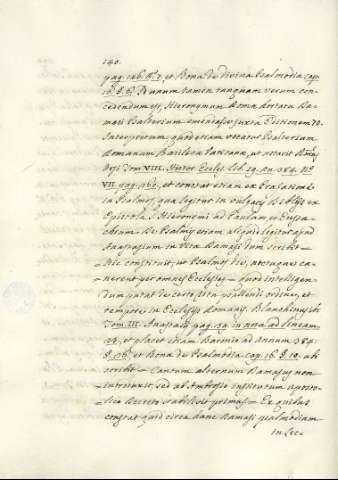 140.
pag. 146. n.º 7. et Bona de divina Psalmodia cap.
16. §. 8. Unum tamen tanquam verum con-
cedendum est, Hieronymum Romæ hortatu Da-
masi Psalterium emendasse juxta Editionem 70.
Interpretum, quod etiam vocatur Psalterium
Romanum Basilicæ Vaticanæ, ut notavit
Tom. VIII. Histor. Eccles. lib. 19. an. 384. n.º
VII. pag. 162. et constat etiam ex Præfatione
in Psalmos, quæ legitur in vulgatis Biblijs ex
Epistola S. Hieronymi ad Paulam, et Eusto-
chium. De Psalmis etiam aliquid legitur apud
Anastasium in Vita Damasi dum scribit —
Hic constituit, ut Psalmos die, noctuque ca-
nerent per omnes Ecclesias — quod intelligen-
dum putat de certo, ordine, et
tempore in Ecclesijs Romanis. Blanchinus ibi
Tom. III. Anastasij pag. 39. in nota ad lineam
29. et placet etiam Baronio ad annum 384.
§. et Bona de Psalmodia cap. 16. §. 10. ubi
scribit — Cantum alternum Damasus non
introduxit, sed ab Ambrosio institutum aposto-
lico Decreto stabilivit primus — Ex quibus
constat quid circa hanc Damasi psalmodiam
in Sec-